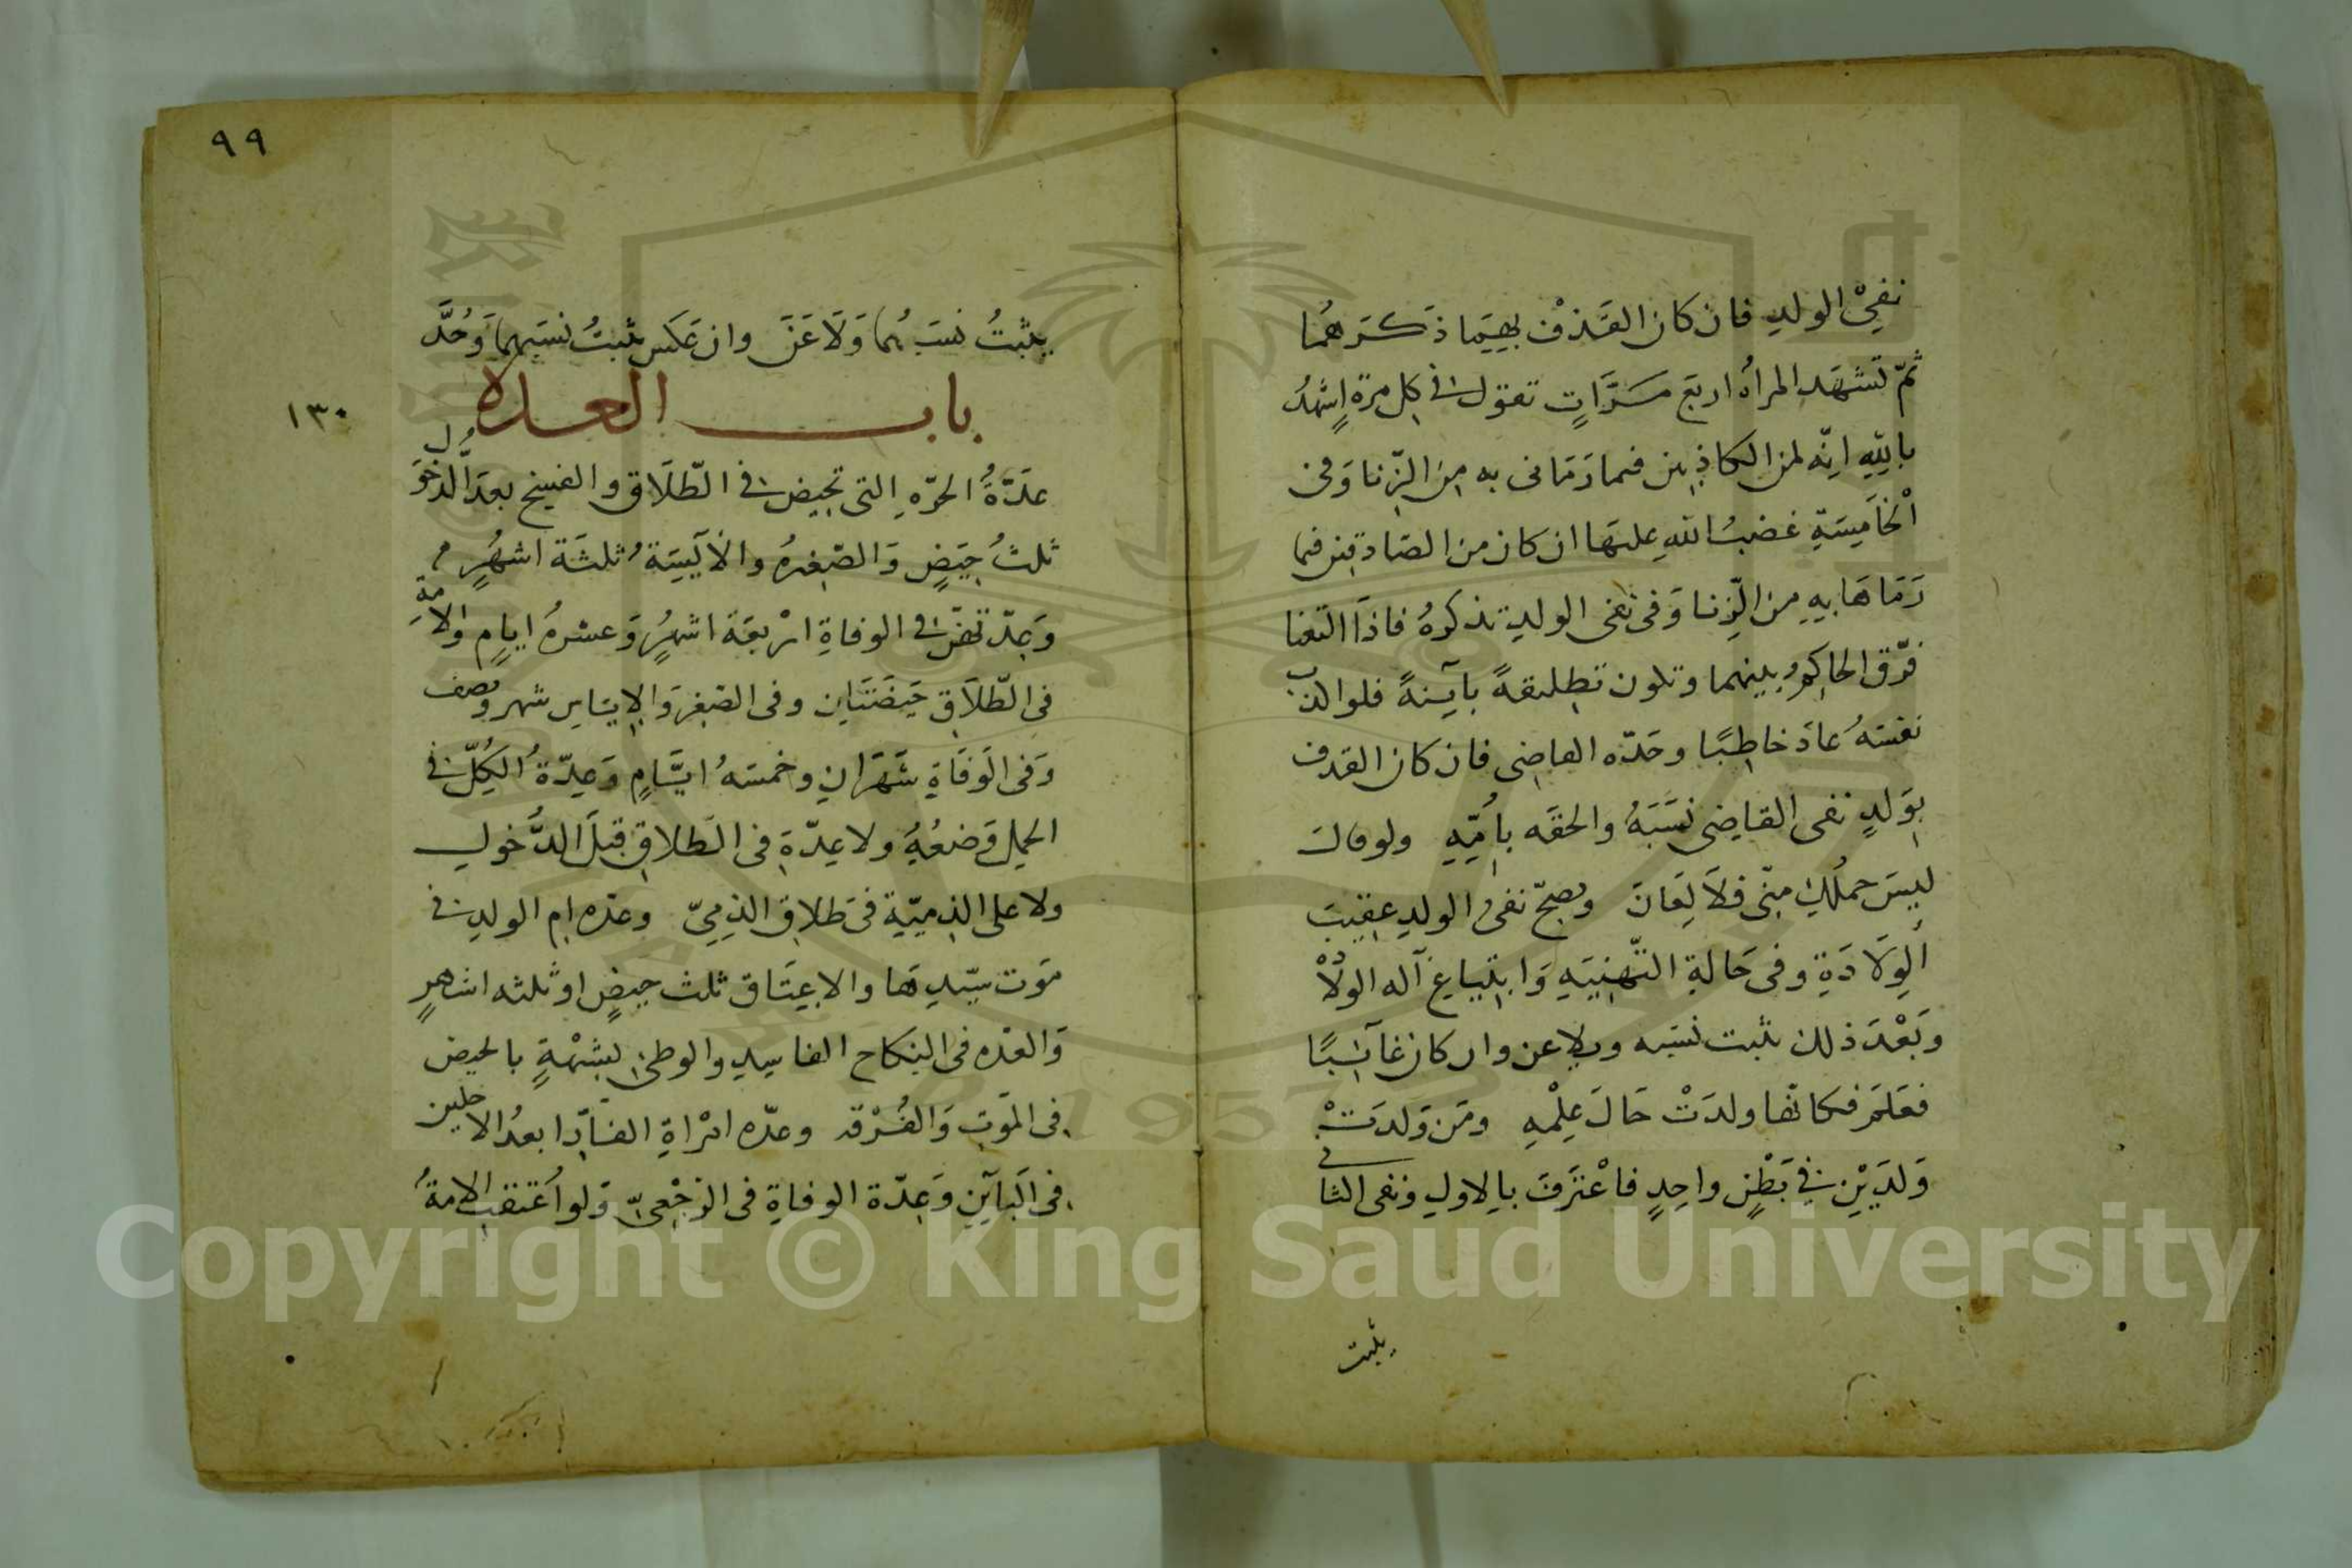 نفي الولدِ فان كان القذف بهِمَا ذكرهُمَا
ثمّ تشهَد المرأه اربَع مَرَّاتٍ تقول فى كل مرة اشهدُ
باللهِ انّه لمن الكاذبين فيما رَمَانى به مِن الزّنا وَفى
الْخَامِسَةِ غضبُ الله عليهَا ان كان من الصّادقين فيما
رَمَاهَا بهِ من الزِّنا وَفى نفى الولدِ تذكرهُ فاذَا التعنا
فرّق الحاكِمُ بينهما وتكون تطليقةً بآينةً فلو اكذب
نفسَهُ عادَ خاطِبًا وحَدّه القاضى فان كان القذف
بوَلدٍ نفى القاضى نَسَبَهُ والحقَه بِاُمِّهِ ولو قالَ
ليسَ حملُكِ منّى فلَا لِعَانَ ويصحّ نفىُ الولدِ عقيبَ
الوِلَادَةِ وفى حَالةِ التّهنِيَهِ وَابتياع آله الولاد
وَبَعْدَ ذلك يثبت نسَبه ويلاعن وان كان غآئبًا
فعَلمَ فكانّها ولدَتْ حَالَ عِلْمْهِ ومَن وَلدَتْ
وَلدَيْنِ فى بَطْنٍ واحِدٍ فاعْترَفَ بالاولِ ونفى الثانى
يثبت
٩٩
يثبتُ نسَبُهما وَلَاعَنَ وان عَكَس يثبتُ نسَبهما وَحُدَّ
باب العده
١٣٠
عدّةُ الحرّهِ التى تحيض فى الطّلَاق والفسخ بعدَ الدّخول
ثلثُ حِيَضٍ وَالصّغيرهُ والاَيِسَةُ ثلثَة اشهُرٍ
وَعدّتهنّ فى الوفاةِ ارْبعَة اشهُرٍ وَعشرهُ ايامٍ والامَةِ
فى الطّلَاقِ حَيضَتَاِن وفى الصّغرِ وَالاِياس شهر ونصف
وَفى الوَفَاةِ شَهْرَانِ وخمسَهُ ايَّامٍ وَعِدّةُ الكُلّ فى
الحمل وَضعُهُ ولا عِدّةِ فى الطلاقِ قبلَ الدُّخول
ولا على الذِميّةِ فى طلاقِ الذِمِىّ وعدّه ام الولدِ فى
مَوت سيّدِهَا والاعِتَاق ثلث حيضٍ او ثلثه اشهرٍ
وَالعدّه فى النكاح الفاسِدِ والوطئ بشبْهةٍ بالحيض
فى المَوتِ وَالفُرْقه وعدّه امْرأةِ الفَارّ ابعدُ الاجلين
فى البَآيِنِ وَعِدّة الوفاةِ فى الرّجْعىّ وَلو اُعتقتِ الامةُ
Copyright © King Saud University
1957